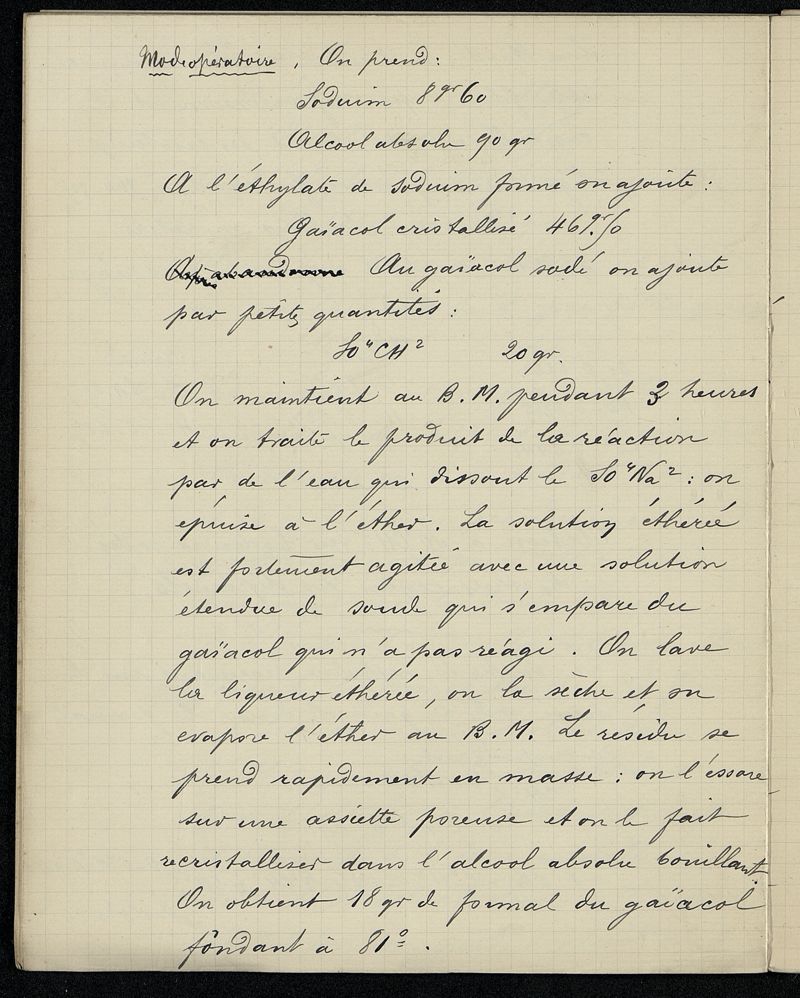 Mode opératoire. On prend:
Sodium 8gr60
Alcool absolu 90 gr
A l'éthylate de sodium formé on ajoute:
Gaïacol cristallisé 46gr.50
Au gaïacol sodé on ajoute
par petites quantités:
SO⁴CH² 20 gr.
On maintient au B.M. pendant 3 heures
et on traite le produit de la réaction
par de l'eau qui dissout le SO⁴Na²: on
épuise à l'éther. La solution éthérée
est fortement agitée avec une solution
étendue de soude qui s'empare du
gaïacol qui n'a pas réagi. On lave
la liqueur éthérée, on la sèche et on
evapore l'éther au B.M. Le résidu se
prend rapidement en masse: on l'essore
sur une assiette poreuse et on le fait
recristalliser dans l'alcool absolu bouillant.
On obtient 18 gr de formal du gaïacol
fondant à 81°.